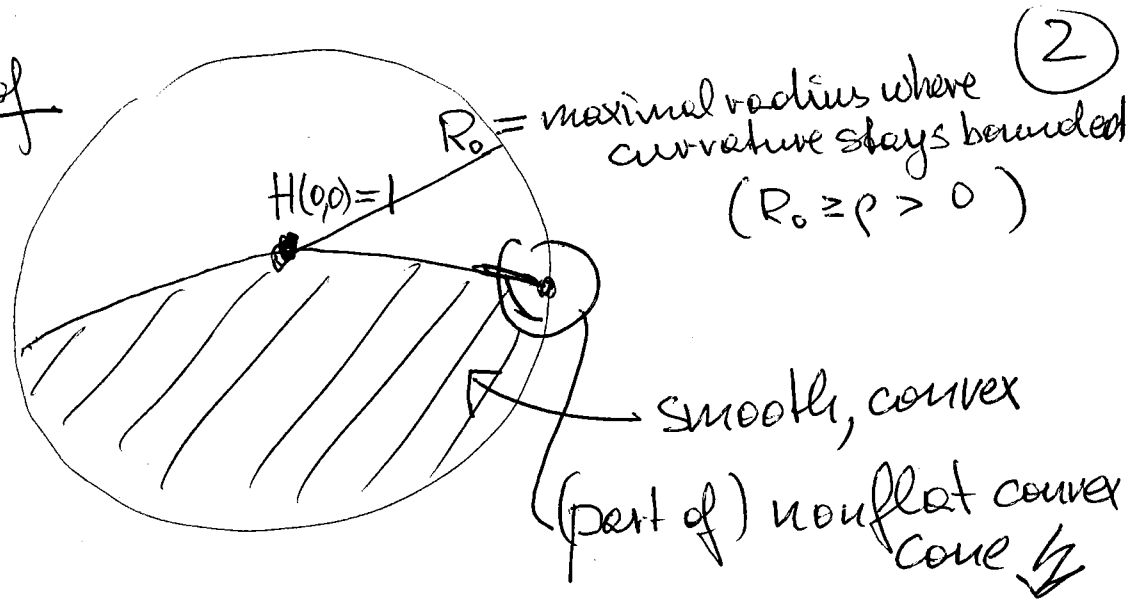 ②
of
R₀ = maximal radius where
curvature stays bounded
(R₀ ≥ ρ > 0)
H(0,0)=1
smooth, convex
(part of) nonflat convex
cone ↯